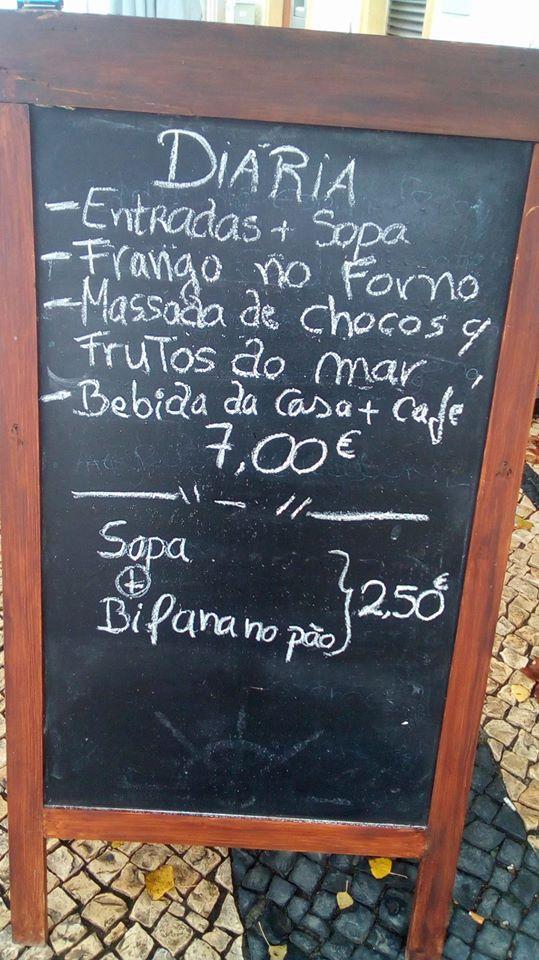 DIÁRIA
- Entradas + Sopa
- Frango no Forno
- Massada de chocos q
Frutos do mar
- Bebida da casa + café
7,00€
Sopa
+
Bifana no pão } 2,50€